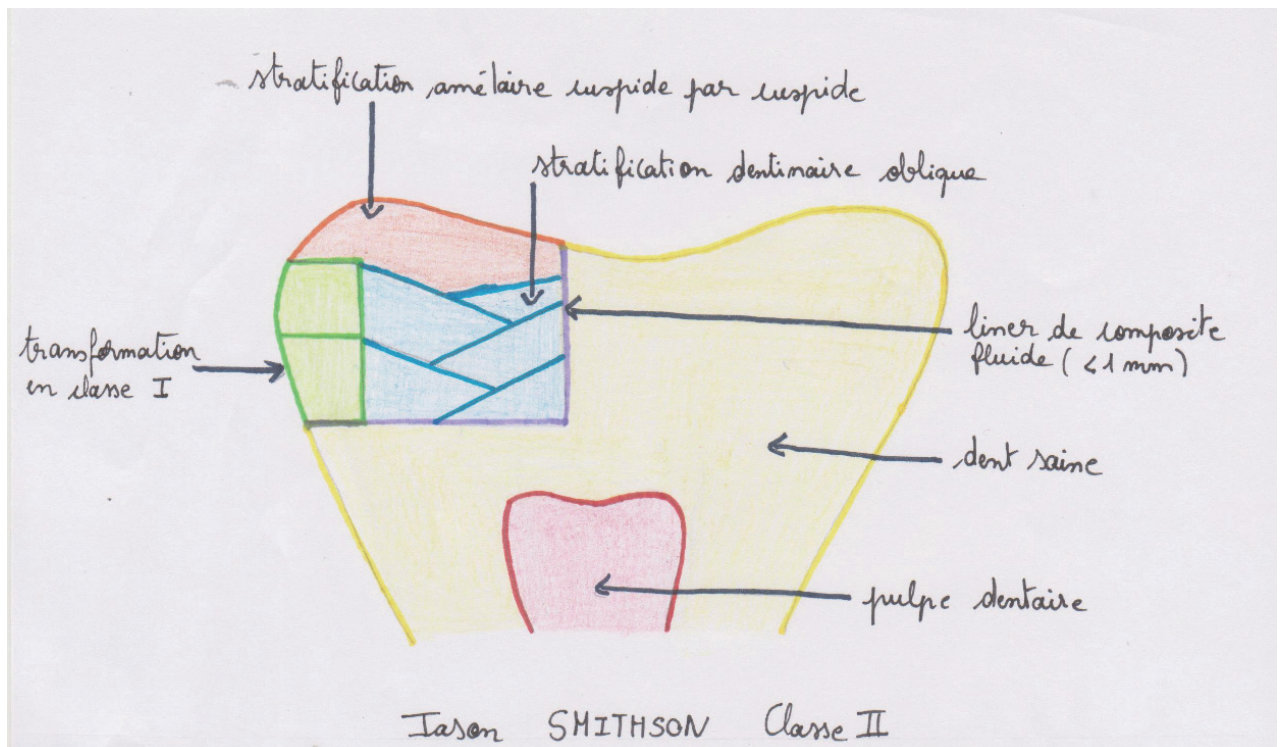 stratification amélaire cuspide par cuspide
stratification dentinaire oblique
transformation
en classe I
liner de composite
fluide (<1mm)
dent saine
pulpe dentaire
Jason SMITHSON Classe II